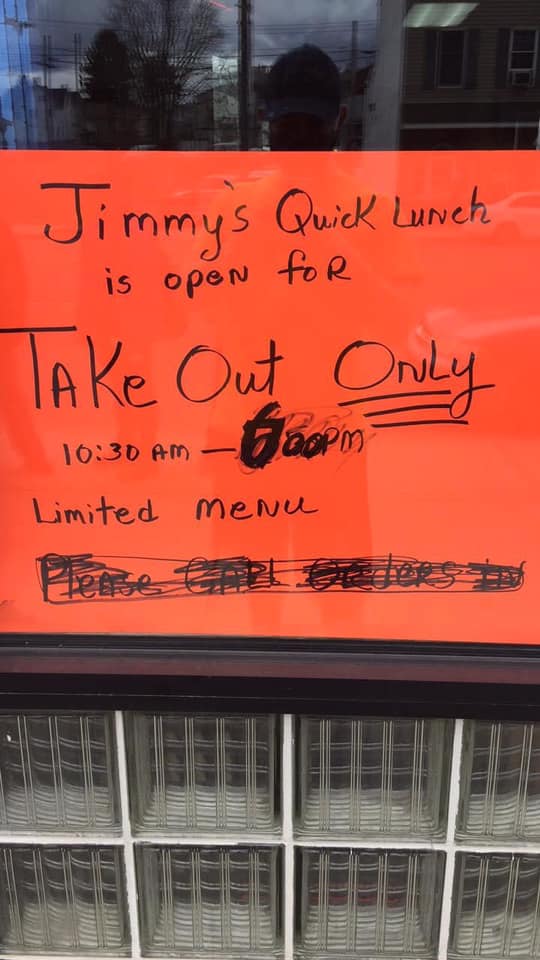 Jimmy's Quick Lunch
is open for
Take Out Only
10:30 AM – 6:00PM
Limited menu
Please Call Orders In